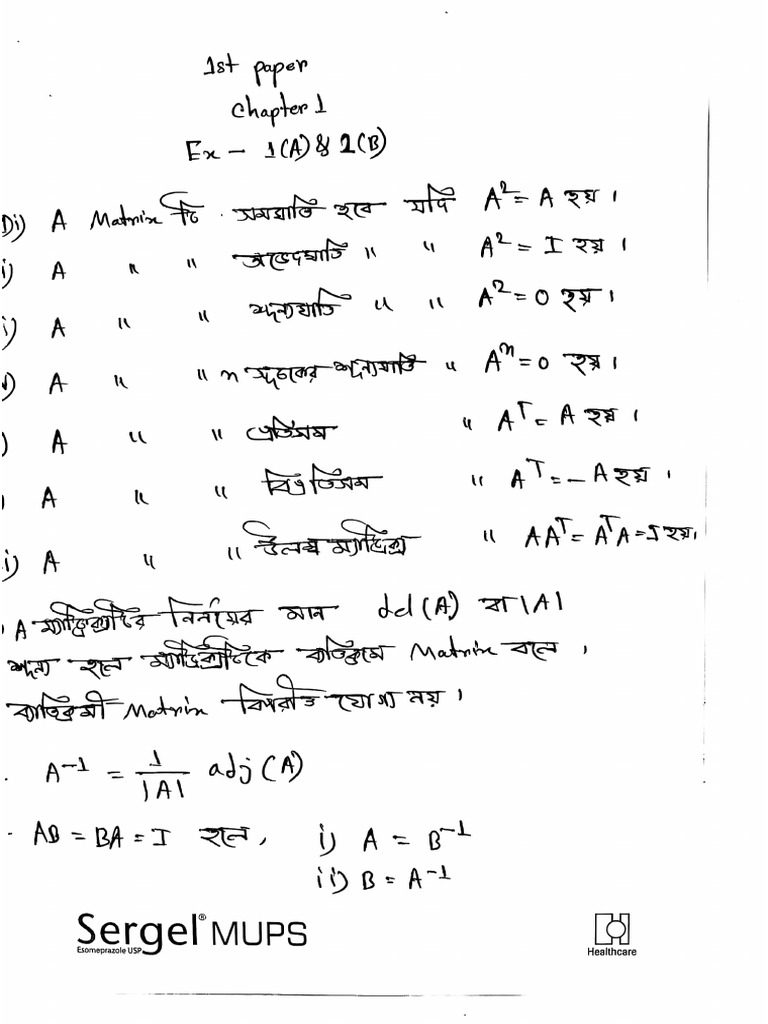 1st paper
Chapter 1
Ex - 1(A) & 1(B)
i) A Matrix টি সমঘাতি হবে যদি A² = A হয়।
i) A " " অভেদঘাতি " " A² = I হয়।
i) A " " শূন্যঘাতি " " A² = 0 হয়।
) A " " n সূচকের শূন্যঘাতি " Aⁿ = 0 হয়।
) A " " প্রতিসম " Aᵀ = A হয়।
A " " বিপ্রতিসম " Aᵀ = -A হয়।
i) A " " উলম্ব ম্যাট্রিক্স " AAᵀ = AᵀA = I হয়।
A ম্যাট্রিক্সটির নির্নায়ের মান det (A) বা |A|
শূন্য হলে ম্যাট্রিক্সটিকে ব্যতিক্রমী Matrix বলে।
ব্যতিক্রমী Matrix বিপরীত যোগ্য নয়।
A⁻¹ = 1/|A| adj (A)
AB = BA = I হলে, i) A = B⁻¹
ii) B = A⁻¹
Sergel® MUPS
Esomeprazole USP
Healthcare